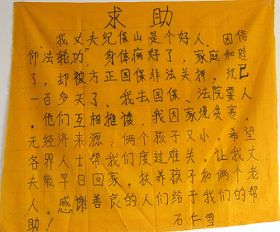 求助
我丈夫纪保山是个好人、因信
仰法轮功，身体病好了，家庭和睦
了，却被方正国保非法关押，现已
一百多天了，我去国保、法院要人
，他们互相推诿，我因家境贫寒，
无经济来源，两个孩子又小，希望
各界人士帮我们度过难关，让我丈
夫能早日回家，扶养孩子和两个老
人，感谢善良的人们给予我们的帮
助！石仁雪